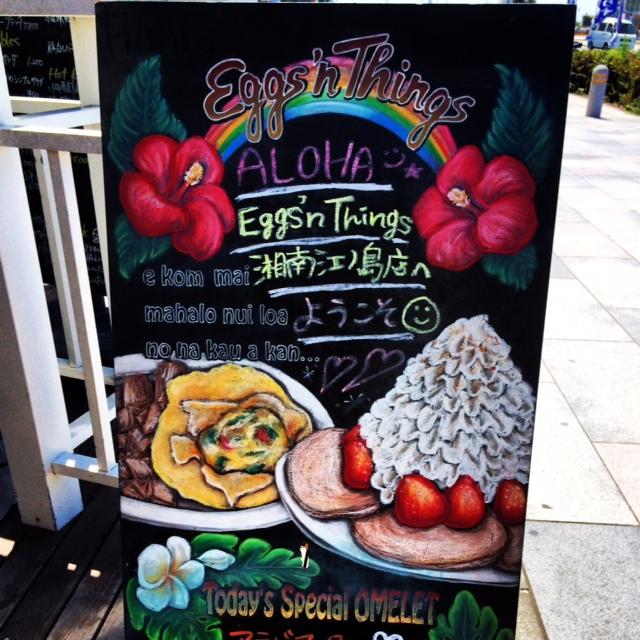 Eggs'n Things
ALOHA
Eggs'n Things
湘南江ノ島店へ
ようこそ
e kom mai
mahalo nui loa
no na kau a kan...
Today's Special OMELET